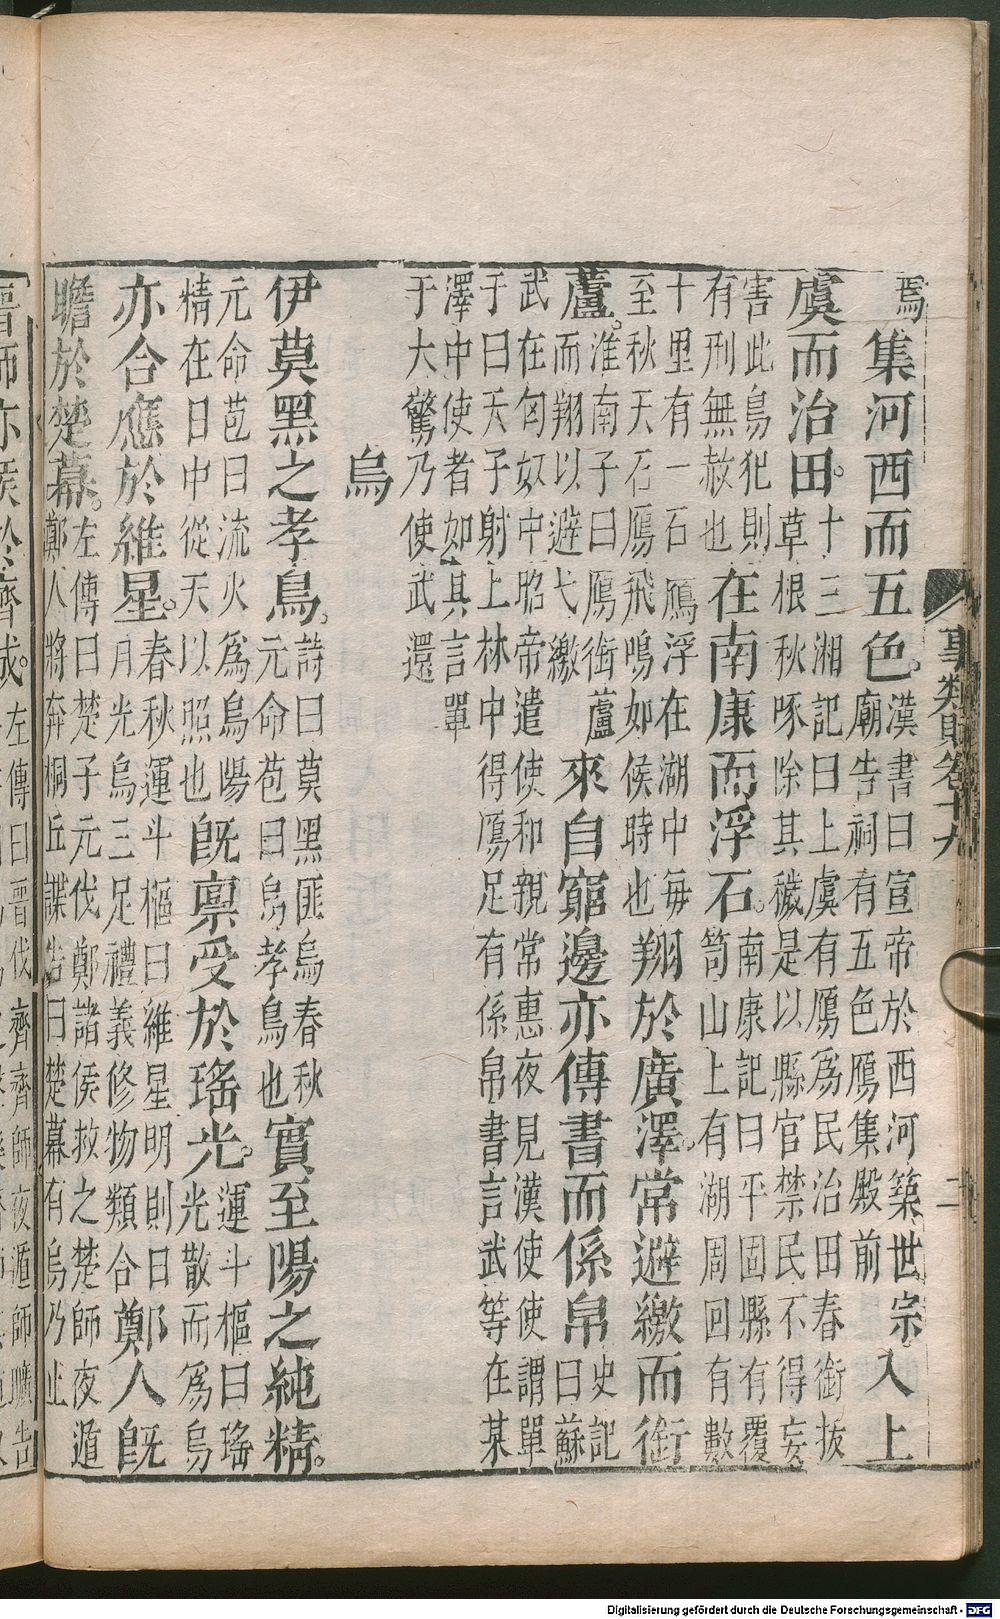 事類賦卷十九
二
焉集河西而五色。漢書曰宣帝於西河築世宗廟告祠有五色鴈集殿前入上
虞而治田。十三湘記曰上虞有鴈爲民治田春銜拔草根秋啄除其穢是以縣官禁民不得妄
害此鳥犯則有刑無赦也在南康而浮石。南康記曰平固縣有覆笥山上有湖周回有數
十里有一石鴈浮在湖中每至秋天石鴈飛鳴如候時也翔於廣澤。常避繳而銜
蘆。淮南子曰鴈銜蘆而翔以避弋繳來自窮邊亦傳書而係帛史記曰蘇
武在匈奴中昭帝遣使和親常惠夜見漢使使謂單于曰天子射上林中得鴈足有係帛書言武等在某
澤中使者如其言單于大驚乃使武還
烏
伊莫黑之孝鳥。詩曰莫黑匪烏春秋元命苞曰烏孝鳥也實至陽之純精。
元命苞曰流火爲烏陽精在日中從天以照也旣禀受於瑤光。運斗樞曰瑤光散而爲烏
亦合應於維星。春秋運斗樞曰維星明則日月光烏三足禮義修物類合鄭人旣
瞻於楚幕。左傳曰楚子元伐鄭諸侯救之楚師夜遁鄭人將奔桐丘諜告曰楚幕有烏乃止
晉師亦候於齊城。左傳曰晉伐齊齊師夜遁師曠告
Digitalisierung gefördert durch die Deutsche Forschungsgemeinschaft - DFG